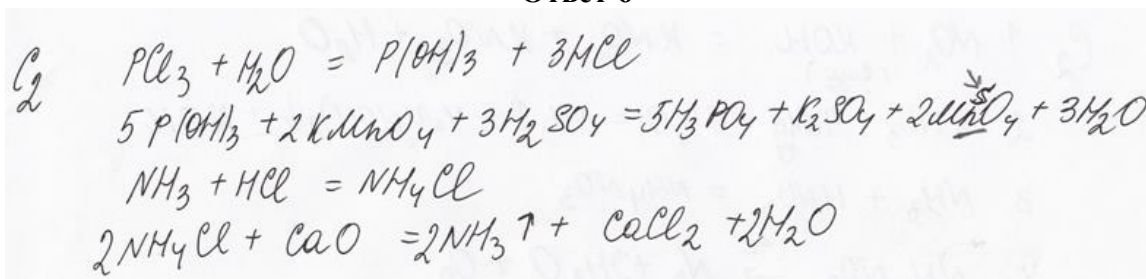 Ответ 6
C2 PCl3 + H2O = P(OH)3 + 3HCl
5 P(OH)3 + 2 KMnO4 + 3H2SO4 = 5H3PO4 + K2SO4 + 2MnSO4 + 3H2O
NH3 + HCl = NH4Cl
2NH4Cl + CaO = 2NH3↑ + CaCl2 + 2H2O